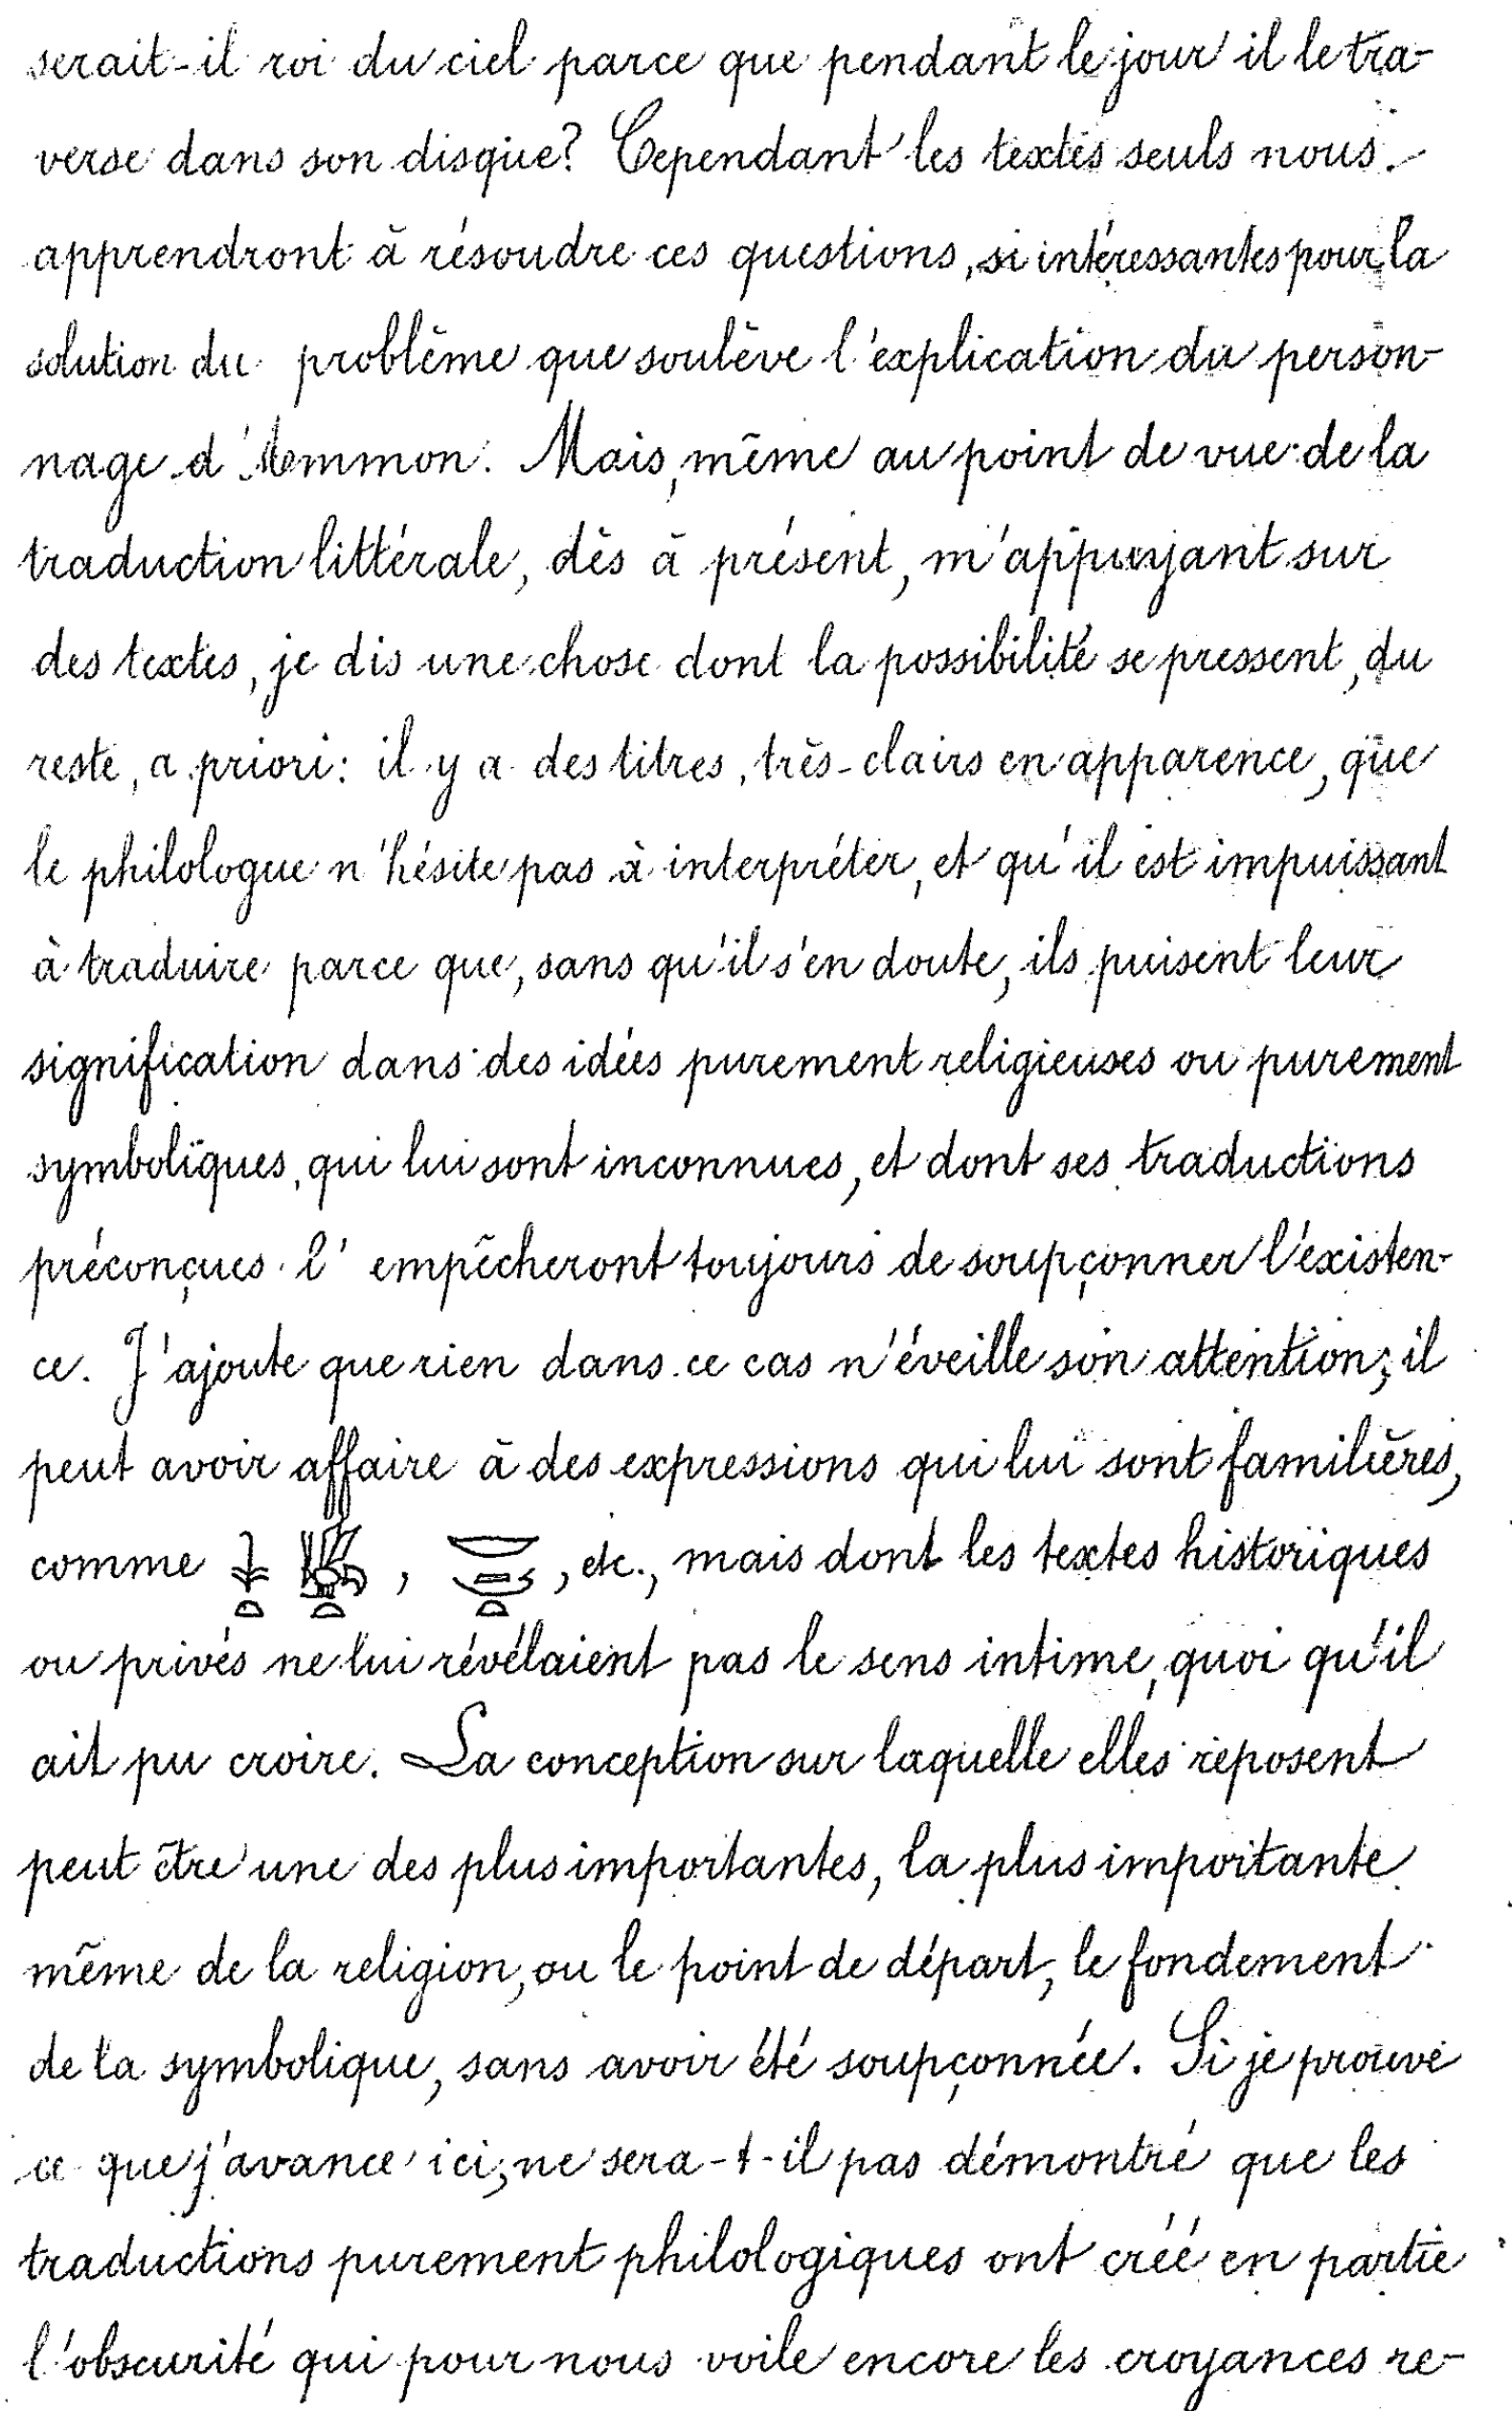 serait-il roi du ciel parce que pendant le jour il le tra-
verse dans son disque? Cependant les textes seuls nous
apprendront à résoudre ces questions, si intéressantes pour la
solution du problème que soulève l'explication du person-
nage d'Ammon. Mais, même au point de vue de la
traduction littérale, dès à présent, m'appuyant sur
des textes, je dis une chose dont la possibilité se pressent, du
reste, a priori: il y a des titres, très-clairs en apparence, que
le philologue n'hésite pas à interpréter, et qu'il est impuissant
à traduire parce que, sans qu'il s'en doute, ils puisent leur
signification dans des idées purement religieuses ou purement
symboliques, qui lui sont inconnues, et dont ses traductions
préconçues l'empêcheront toujours de soupçonner l'existen-
ce. J'ajoute que rien dans ce cas n'éveille son attention; il
peut avoir affaire à des expressions qui lui sont familières,
comme , , etc., mais dont les textes historiques
ou privés ne lui révélaient pas le sens intime, quoi qu'il
ait pu croire. La conception sur laquelle elles reposent
peut être une des plus importantes, la plus importante
même de la religion, ou le point de départ, le fondement
de la symbolique, sans avoir été soupçonnée. Si je prouve
ce que j'avance ici, ne sera-t-il pas démontré que les
traductions purement philologiques ont créé en partie
l'obscurité qui pour nous voile encore les croyances re-